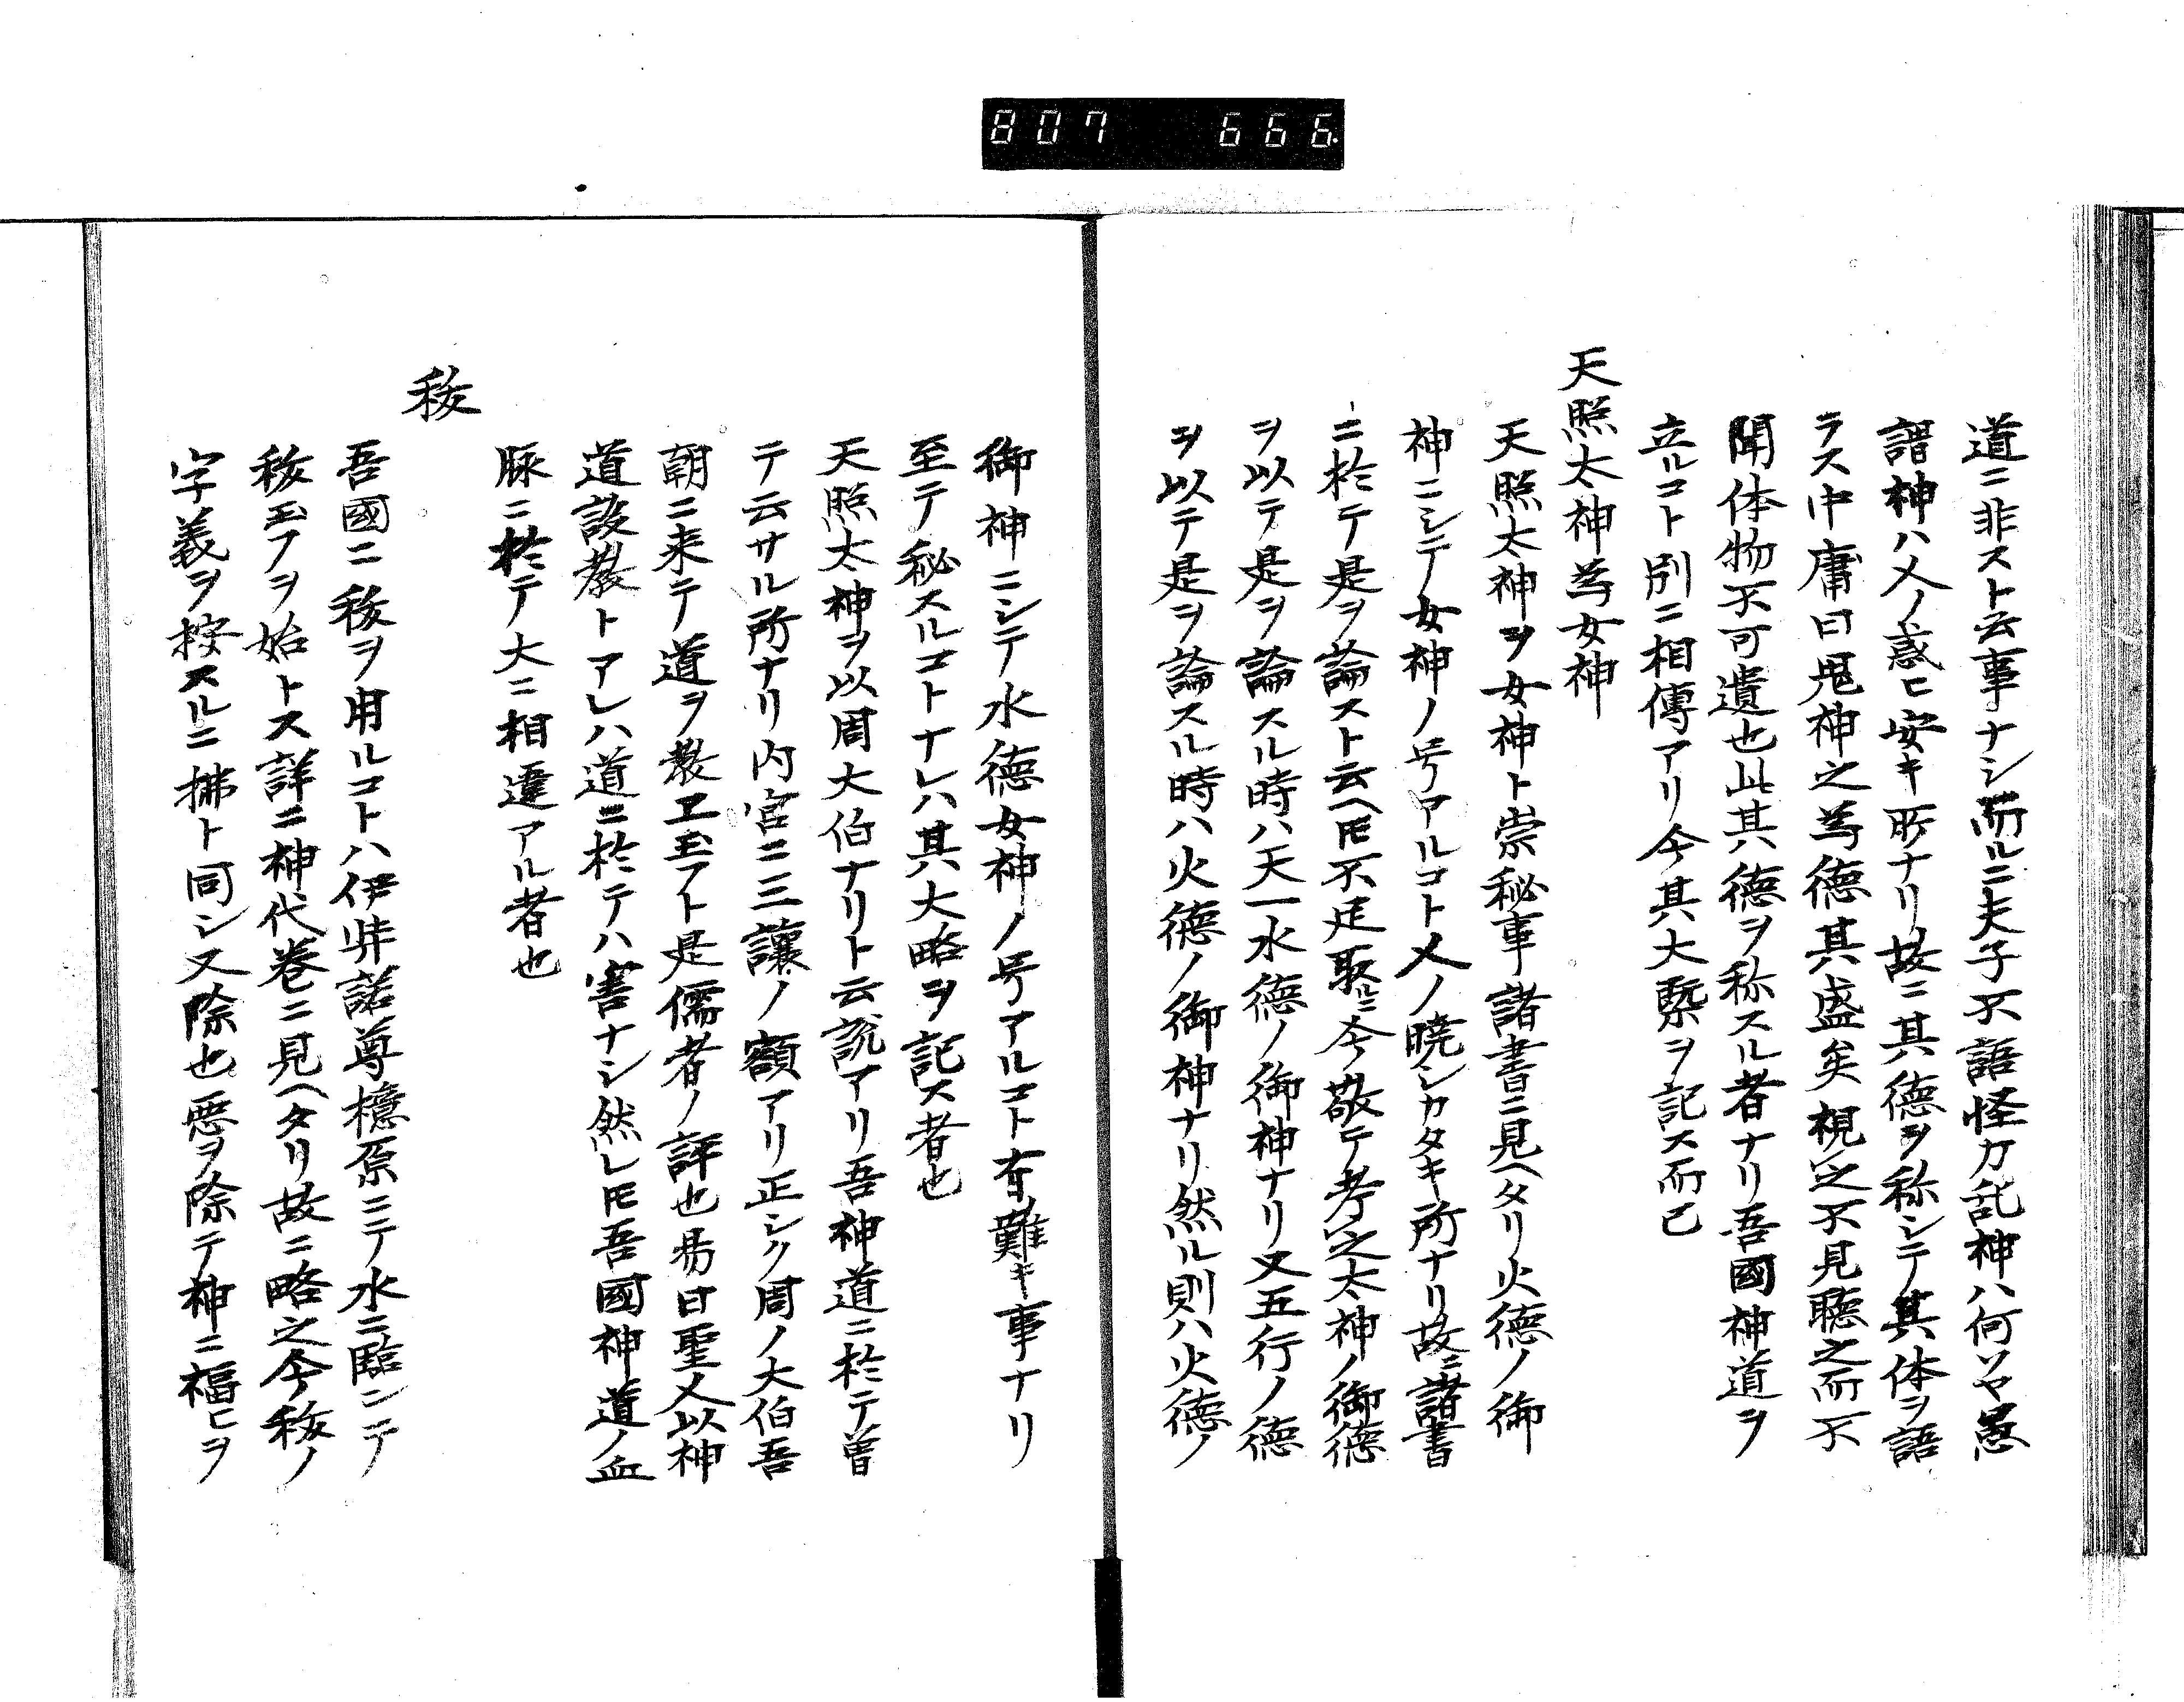 807 666.
道ニ非スト云事ナシ而ルニ夫子不語怪力乱神ハ何ソヤ愚
謂神ハ人ノ惑ヒ安キ所ナリ故ニ其徳ヲ称シテ其体ヲ語
ラス中庸曰鬼神之為徳其盛矣視之不見聴之而不
聞体物不可遺也此其徳ヲ称スル者ナリ吾國神道ヲ
立ルコト別ニ相傳アリ今其大槩ヲ記ス而已
天照太神為女神
天照太神ヲ女神ト崇秘事諸書ニ見ヘタリ火徳ノ御
神ニシテ女神ノ号アルコト人ノ暁シカタキ所ナリ故ニ諸書
ニ於テ是ヲ論スト云ヘ𪜈不足取ニ今敬テ考之太神ノ御徳
ヲ以テ是ヲ論スル時ハ天一水徳ノ御神ナリ又五行ノ徳
ヲ以テ是ヲ論スル時ハ火徳ノ御神ナリ然ル則ハ火徳ノ
御神ニシテ水徳女神ノ号アルコト有難キ事ナリ
至テ秘スルコトナレハ其大略ヲ記ス者也
天照太神ヲ以周大伯ナリト云説アリ吾神道ニ於テ曽
テ云サル所ナリ内宮ニ三讓ノ額アリ正シク周ノ大伯吾
朝ニ来テ道ヲ教ヱ玉フト是儒者ノ評也易曰聖人以神
道設教トアレハ道ニ於テハ害ナシ然レ𪜈吾國神道ノ血
脉ニ於テ大ニ相違アル者也
秡
吾國ニ秡ヲ用ルコトハ伊弉諾尊檍原ニテ水ニ臨ンテ
秡玉フヲ始トス詳ニ神代巻ニ見ヘタリ故ニ略之今秡ノ
字義ヲ按スルニ拂ト同シ又除也悪ヲ除テ神ニ福ヒヲ